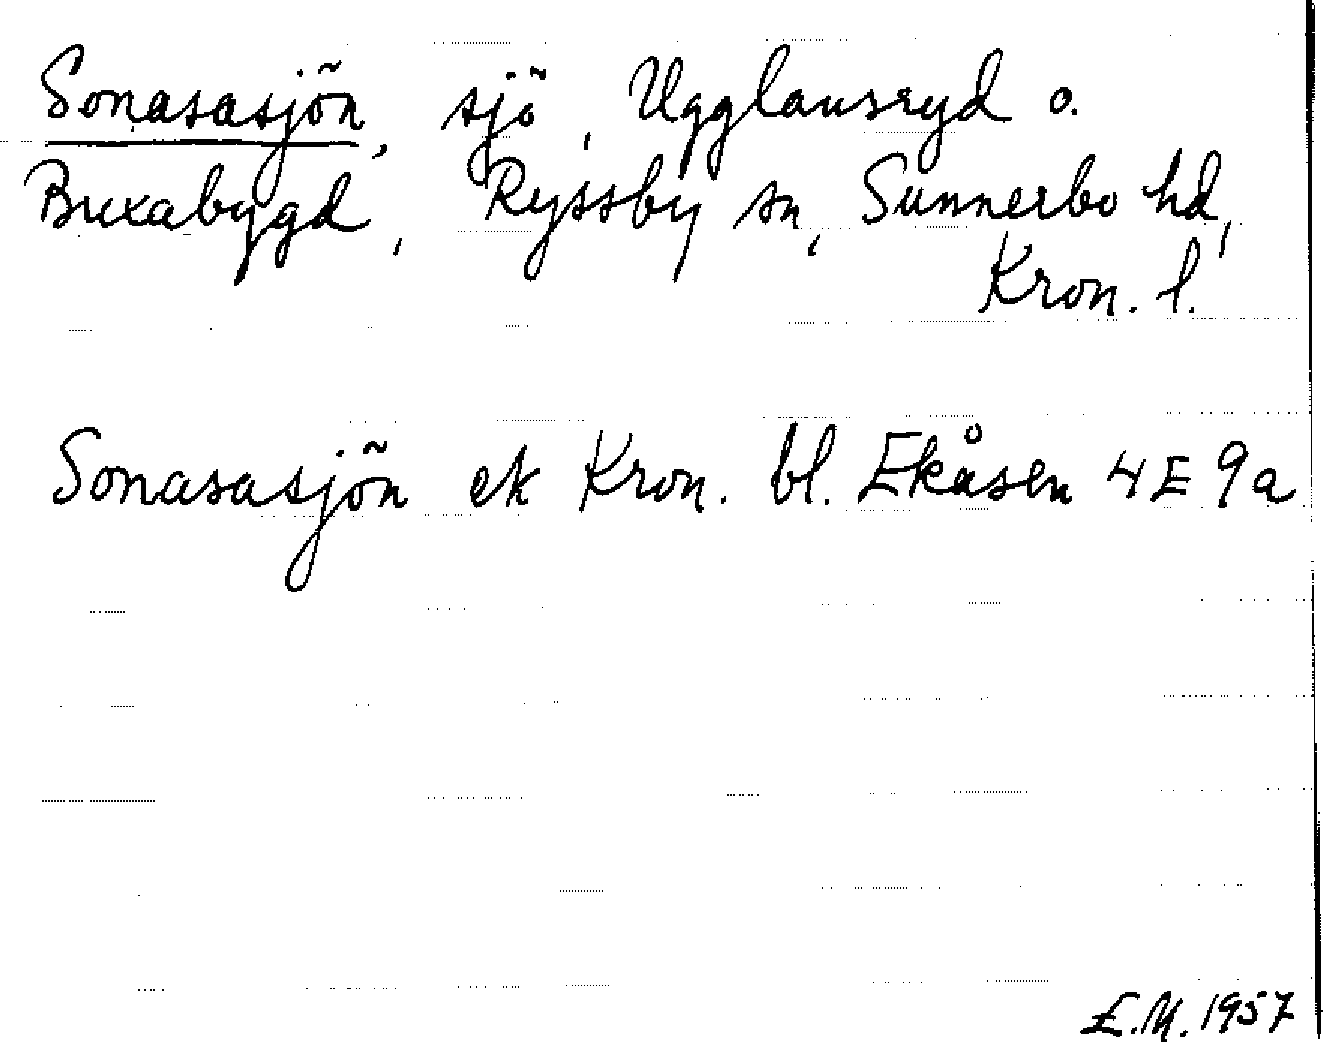 Sonasasjön, sjö, Ugglansryd o.
Buxabygd, Ryssby sn, Sunnerbo hd,
Kron. l.
Sonasasjön ek Kron. bl. Ekåsen 4E 9a
E.M. 1957